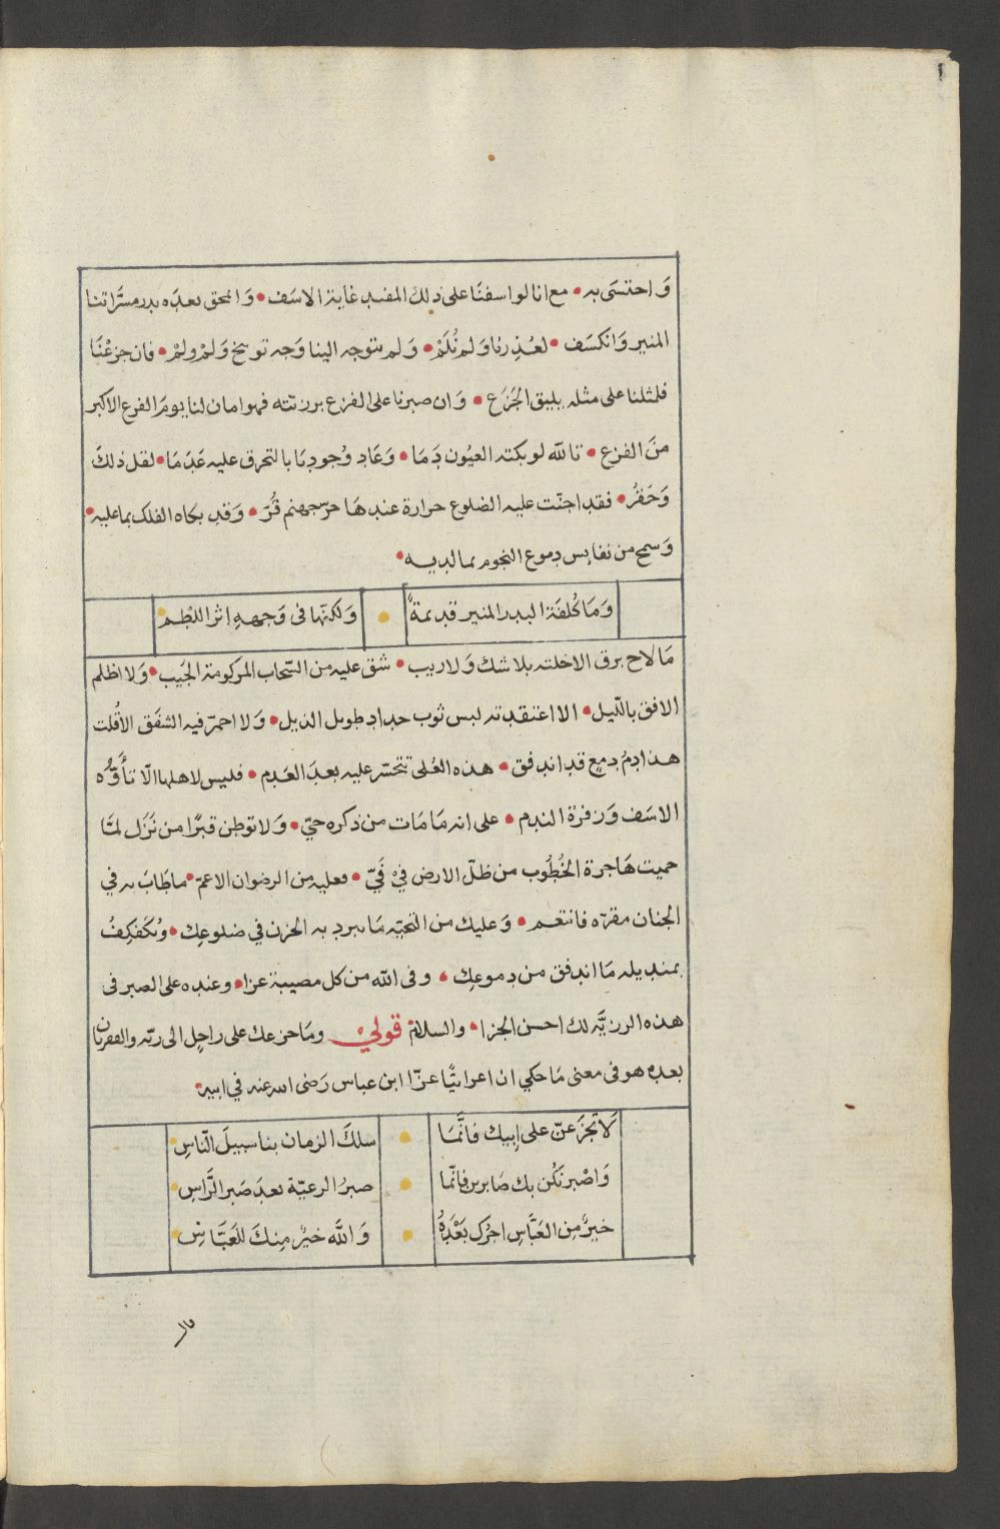 وَاحتسَى به • مع انا لو اسفنَا على ذلك المفيد غاية الاسَف • وَانمحق بعدَه بدر مسَرّاتنا
المنير وَانكسَف • لعُذِرنا وَلم نُلَمْ • وَلم يتوجه الينا وَجه توبيخ وَلَمْ ولِمْ • فان جزعْنَا
فلمثلنا على مثله يليق الجَزَع • وَان صبرنا على الفزع برزيّته فهو امان لنا يومَ الفزع الاكبر
منَ الفزع • تالله لو بكته العيُون دَمَا • وَعَاد وُجودنا بالتحرق عليه عَدَمَا • لقل ذلكَ
وَحَقرُ • فقد اجنّت عليه الضلوع حرارة عندهَا حرّ جهنم قُرّ • وَقد بكاه الفلك بما عليه •
وَسمح من نفايس دموع النجوم بما لديه •
وَمَا كُلفَة البدر المنير قديمةٌ • وَلكنّها فى وَجههِ اثر اللطم •
مَا لاح برق الا خلته بلا شك وَلا ريب • شق عليه من السّحاب المركومة الجَيب • وَلا اظلم
الافق بالّليل • الا اعتقدته لبس ثوب حداد طويل الذيل • وَلا احمرّ فيه الشفَق الا قُلت
هذا دمُ دمعٍ قد اندفق • هذه العُلى تتحسّر عليه بعدَ العَدم • فليس لاهلها الّا تأَوُّه
الاسَف وَزفرة الندم • على انه مَا مَات من ذكره حيّ • وَلا توطن قبرًا من نَزَل لمّا
حميت هَاجرة الخُطُوب من ظلّ الارض فيْ فَيّ • فعليه من الرضوان الاعمّ • ما طَابَ به في
الجنان مقرّه فانتعم • وَعليك من التحيّة مَا يبرد به الحزن في ضلوعك • وَيُكَفكِفُ
بمنديله مَا اندفق من دموعك • وفى الله من كل مصيبة عزا • وعنده على الصبر فى
هذه الرزيَّه لك احسن الجزا • والسلامْ قولي ومَا حزعك على راحِل الى ربّه والفقرتان
بعده هو فى معنى مَا حكي ان اعرابيًّا عزّا ابن عباس رَضى الله عنه في ابيه •
لَا تجزَعنّ على ابيك فانَّمَا • سلكَ الزمان بنا سبيلَ النّاسِ •
وَاصْبر نَكُن بك صَابرين فانّما • صبرُ الرعيّة بعدَ صَبر الرَّاسِ •
خيرٌ من العَبَّاسِ اجرُك بَعْدَهُ • وَالله خيرٌ مِنكَ للعَبَّاسْ •